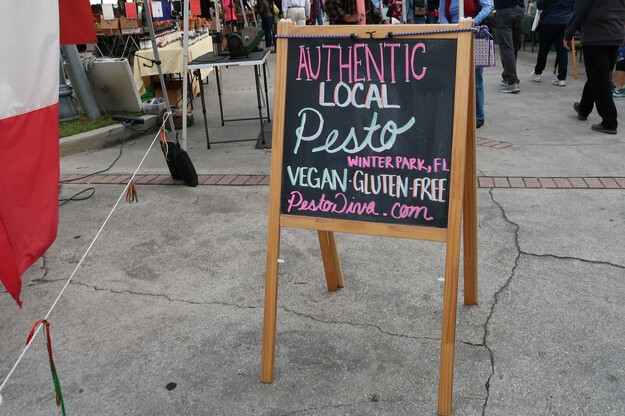 AUTHENTIC
LOCAL
Pesto
WINTER PARK, FL
VEGAN·GLUTEN-FREE
PestoDiva.com